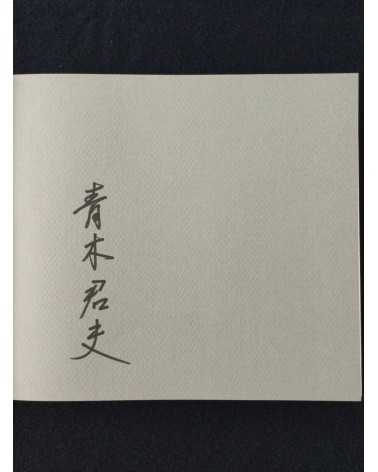 青木君夫